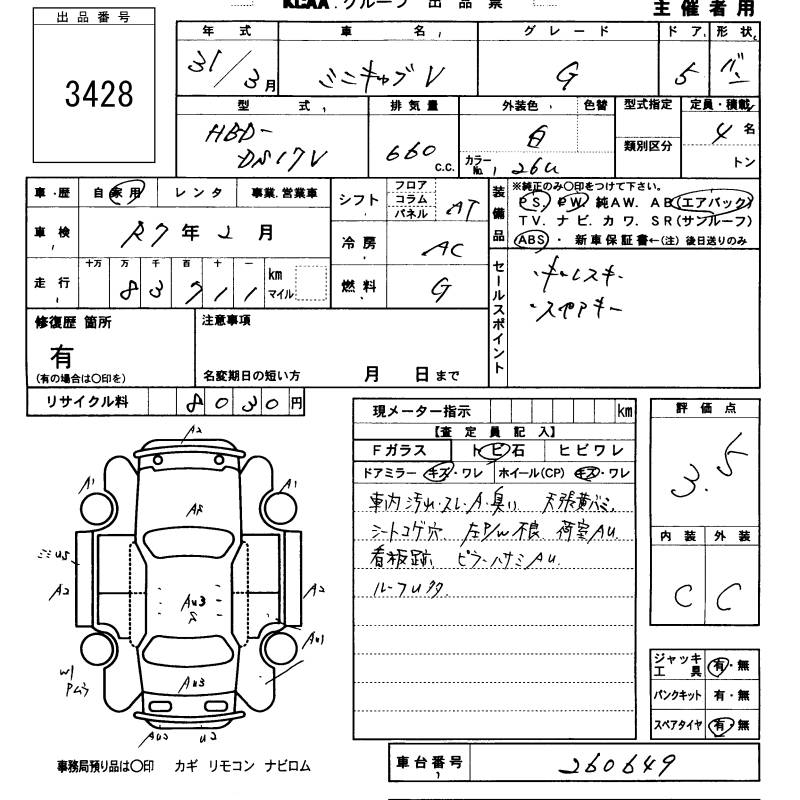 KCAA グループ 出品票
主催者用
出品番号
3428
年式 車名 グレード ドア 形状
31/3月 ミニキャブV G 5 バン
型式 排気量 外装色 色替 型式指定 定員・積載
HBD-
DS17V 660 c.c. 白 4 名
カラーNo. 26U 類別区分 トン
車・歴 自家用 レンタ 事業.営業車
シフト フロア コラム パネル AT
装備品 ※純正のみ〇印をつけて下さい。
PS. PW. 純AW. AB(エアバック)
TV. ナビ. カワ. SR(サンルーフ)
ABS ・ 新車保証書←(注) 後日送りのみ
車検 R7年2月
冷房 AC
走行 十万 万 千 百 十 一 km マイル
83711
燃料 G
セールスポイント
・キーレスキー
・スペアキー
修復歴 箇所
有
(有の場合は〇印を)
注意事項
名変期日の短い方 月 日まで
リサイクル料 8030円
現メーター指示 km
【査定員記入】
Fガラス トビ石 ヒビワレ
ドアミラー キズ・ワレ ホイール(CP) キズ・ワレ
車内汚れ・スレ・A・臭い 天張黄バミ.
シートコゲ穴. 左P/W不良 荷室AU.
看板跡. ピラーハサミAU.
ルーフU多.
評価点
3.5
内装 外装
C C
A2
A1 A1
AP
ミミU5
A2 A2
AU3
AU1
W1
Pムラ
AU3
AU2 U2
ジャッキ工具 有・無
パンクキット 有・無
スペアタイヤ 有・無
事務局預り品は〇印 カギ リモコン ナビロム
車台番号 260649